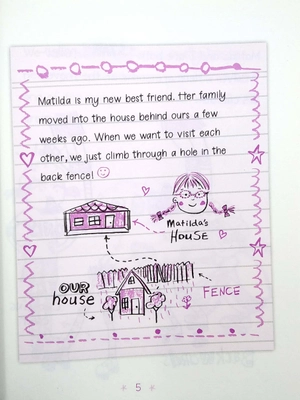 Matilda is my new best friend. Her family
moved into the house behind ours a few
weeks ago. When we want to visit each
other, we just climb through a hole in the
back fence!
Matilda's
HOUSE
OUR
house
FENCE
5